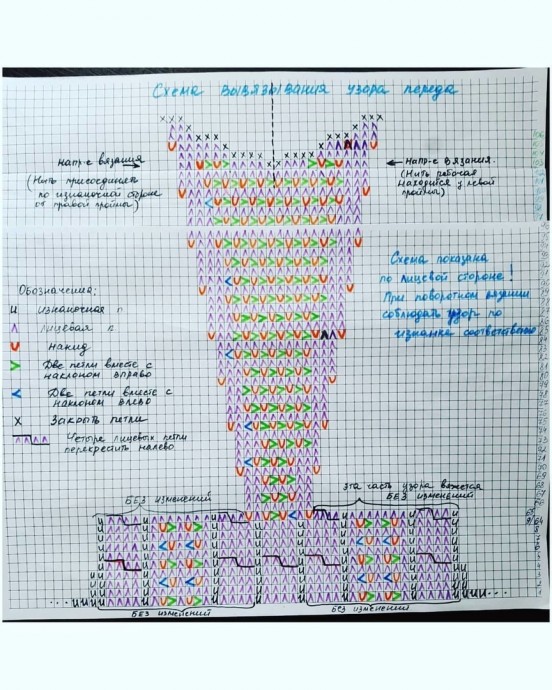 Схема вывязывания узора переда
напр-е вязания
(Нить присоединить
по изнаночной стороне
от правой проймы)
Напр-е вязания.
(Нить рабочая
находится у левой
проймы)
Схема показана
по лицевой стороне!
При поворотном вязании
соблюдать узор по
изнанке соответственно
Обозначения:
изнаночная п
лицевая п
накид
Две петли вместе с
наклоном вправо
Две петли вместе с
наклоном влево
Закрыть петли
Четыре лицевых петли
перекрестить налево
БЕЗ ИЗМЕНЕНИЙ
эта часть узора вяжется
БЕЗ ИЗМЕНЕНИЙ
БЕЗ ИЗМЕНЕНИЙ
БЕЗ ИЗМЕНЕНИЙ